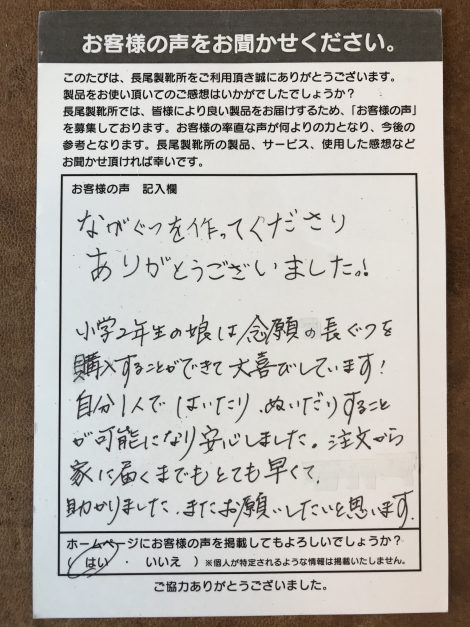 お客様の声をお聞かせください。
このたびは、長尾製靴所をご利用頂き誠にありがとうございます。
製品をお使い頂いてのご感想はいかがでしたでしょうか？
長尾製靴所では、皆様により良い製品をお届けするため、「お客様の声」
を募集しております。お客様の率直な声が何よりの力となり、今後の
参考となります。長尾製靴所の製品、サービス、使用した感想など
お聞かせ頂ければ幸いです。
お客様の声　記入欄
ながぐつを作ってくださり
ありがとうございました。!
小学2年生の娘は念願の長ぐつを
購入することができて大喜びしています!
自分1人ではいたり、ぬいだりすること
が可能になり安心しました。注文から
家に届くまでもとても早くて、
助かりました。またお願いしたいと思います。
ホームページにお客様の声を掲載してもよろしいでしょうか？
（ はい ・ いいえ ）※個人が特定されるような情報は掲載いたしません。
ご協力ありがとうございました。